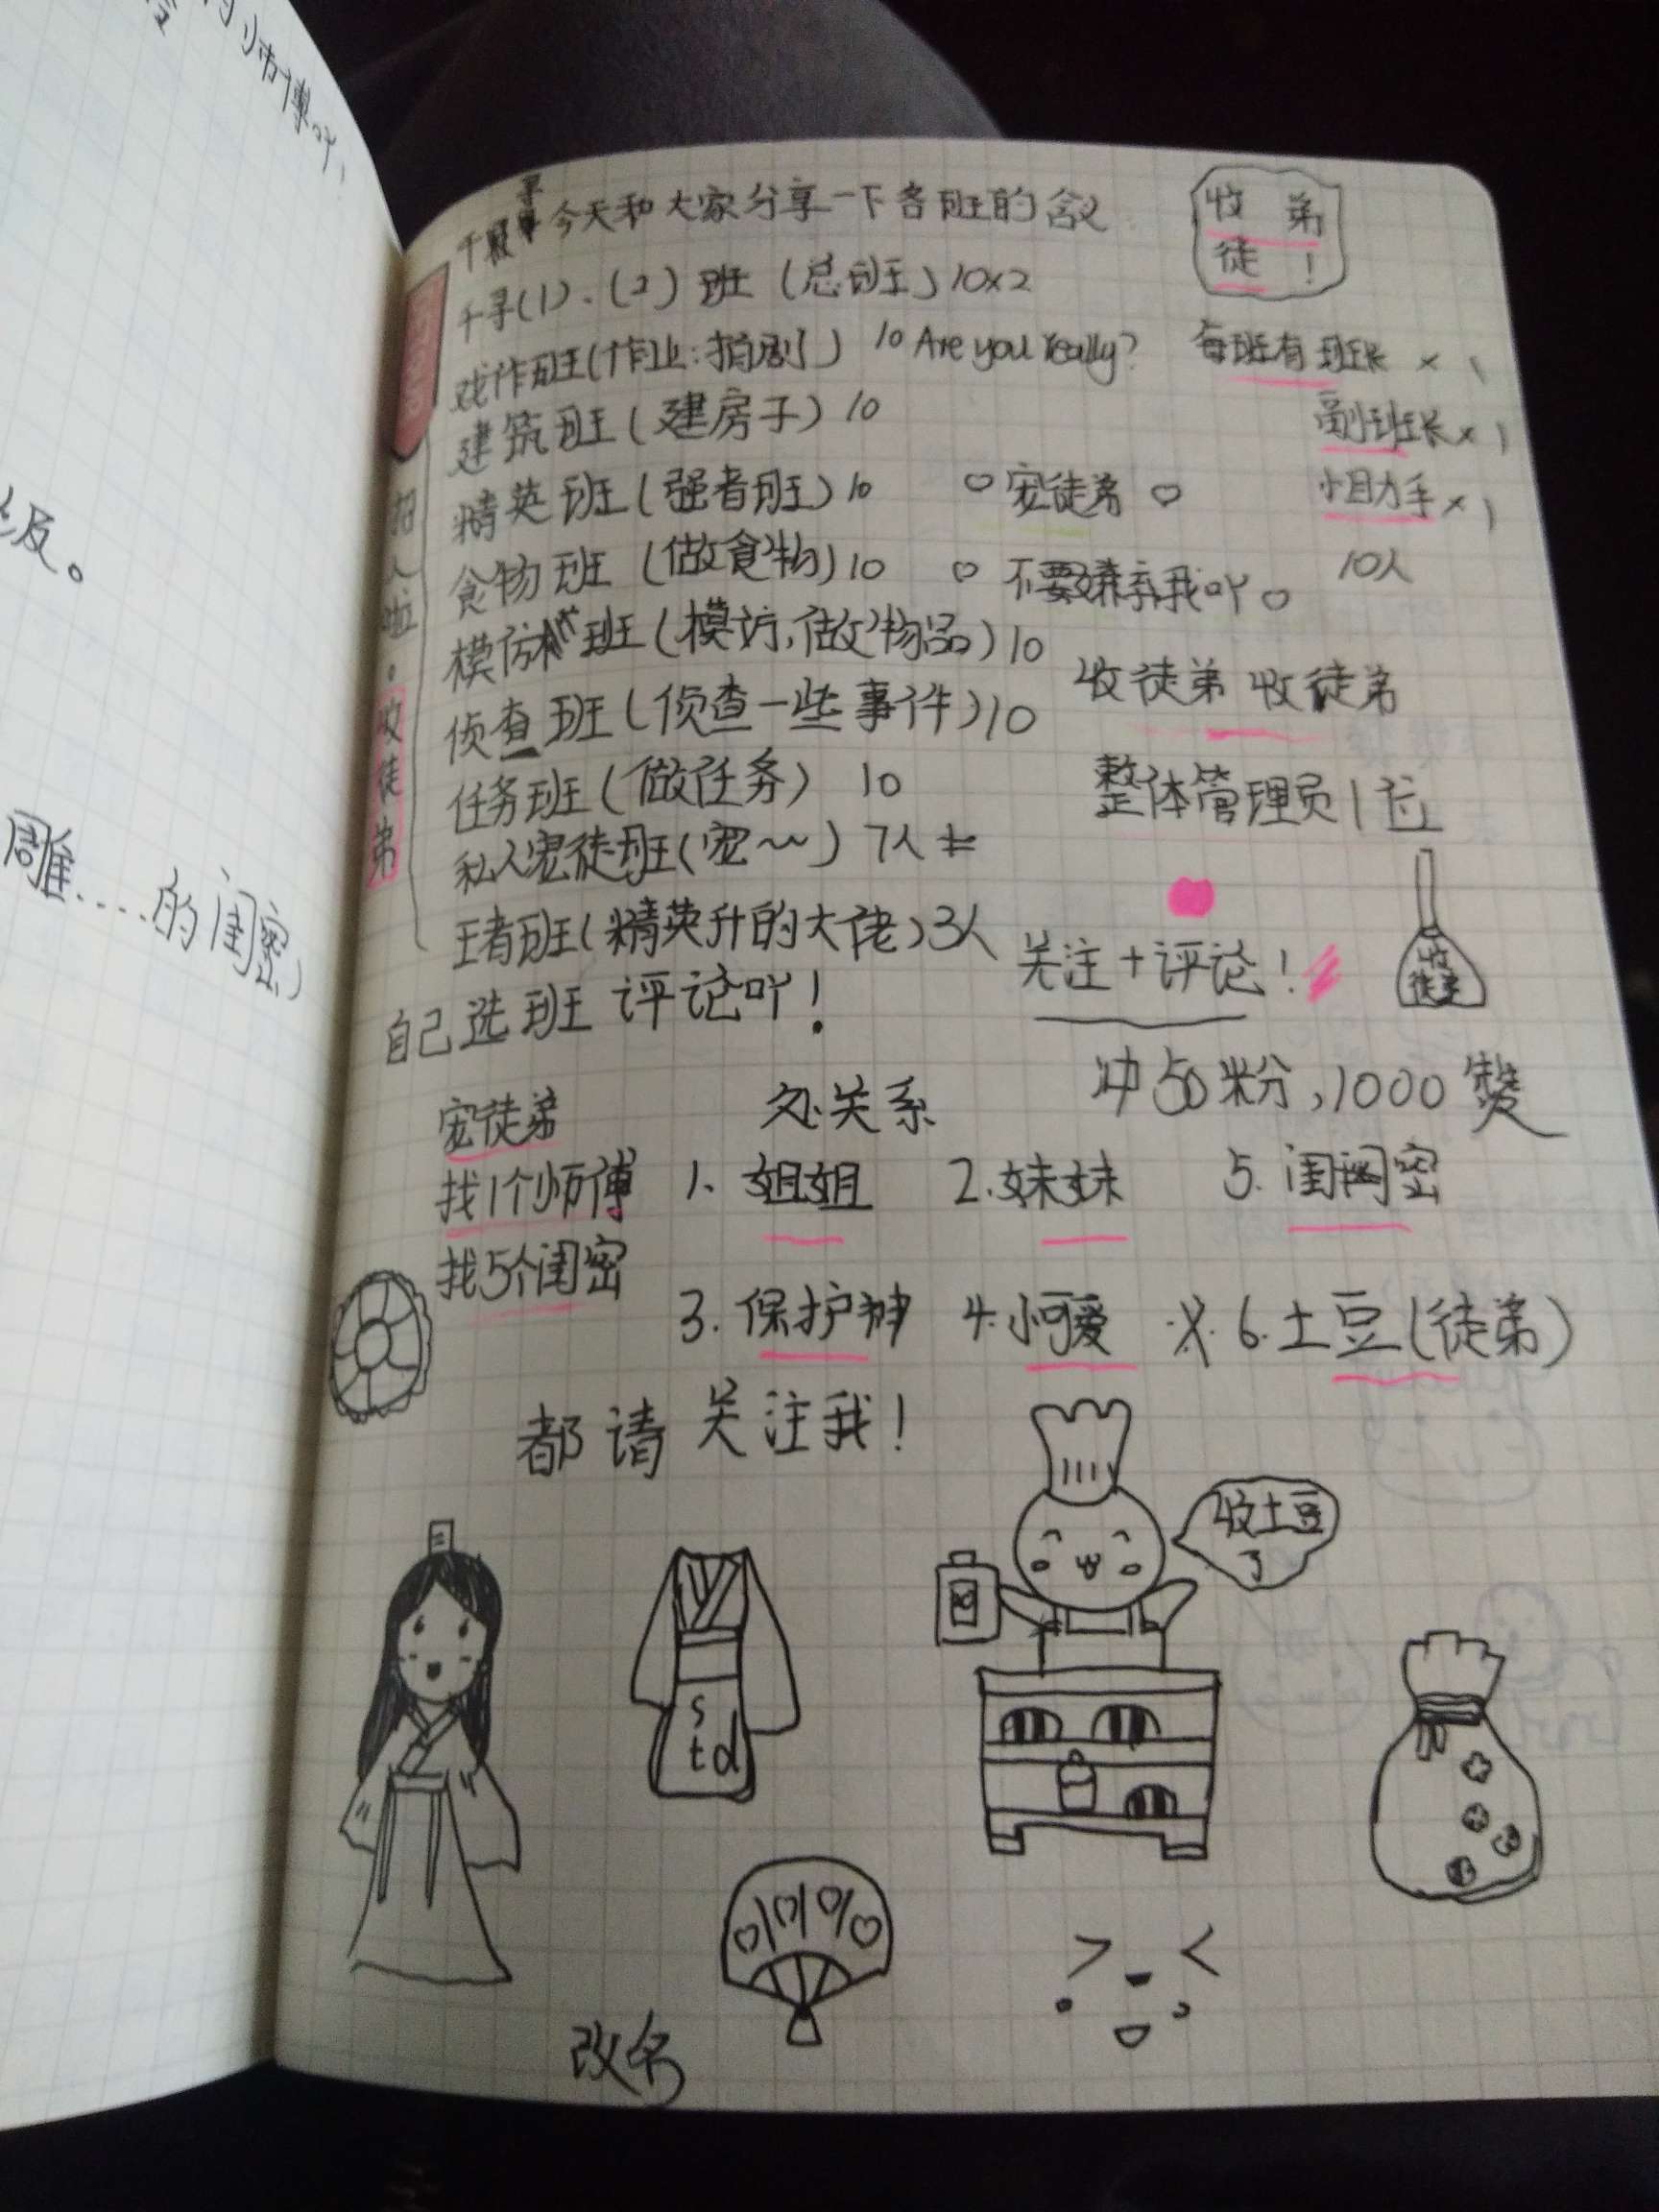 师傅吖
级。
雕....的闺密)
招人啦。收徒弟
千寻今天和大家分享一下各班的含义
收徒弟!
千寻(1)、(2)班(总班)10x2
戏作班(作业:拍剧)10 Are you really?
每班有班长 x 1
建筑班(建房子)10
副班长 x 1
精英班(强者班)10
♡宠徒弟♡
小助手 x 1
食物班(做食物)10
不要嫌弃我吖
10人
模仿班(模访,做物品)10
收徒弟 收徒弟
侦查班(侦查一些事件)10
任务班(做任务) 10
整体管理员1位
私人宠徒班(宠~~)7人
王者班(精英升的大佬)3人
关注+评论!
收徒弟
自己选班 评论吖!
冲50粉,1000赞
宠徒弟
处关系
找1个师傅
1、姐姐 2.妹妹 5.闺闺密
找5个闺密
3.保护神 4.小可爱 6.土豆(徒弟)
都请关注我!
收土豆了
s
td
改名